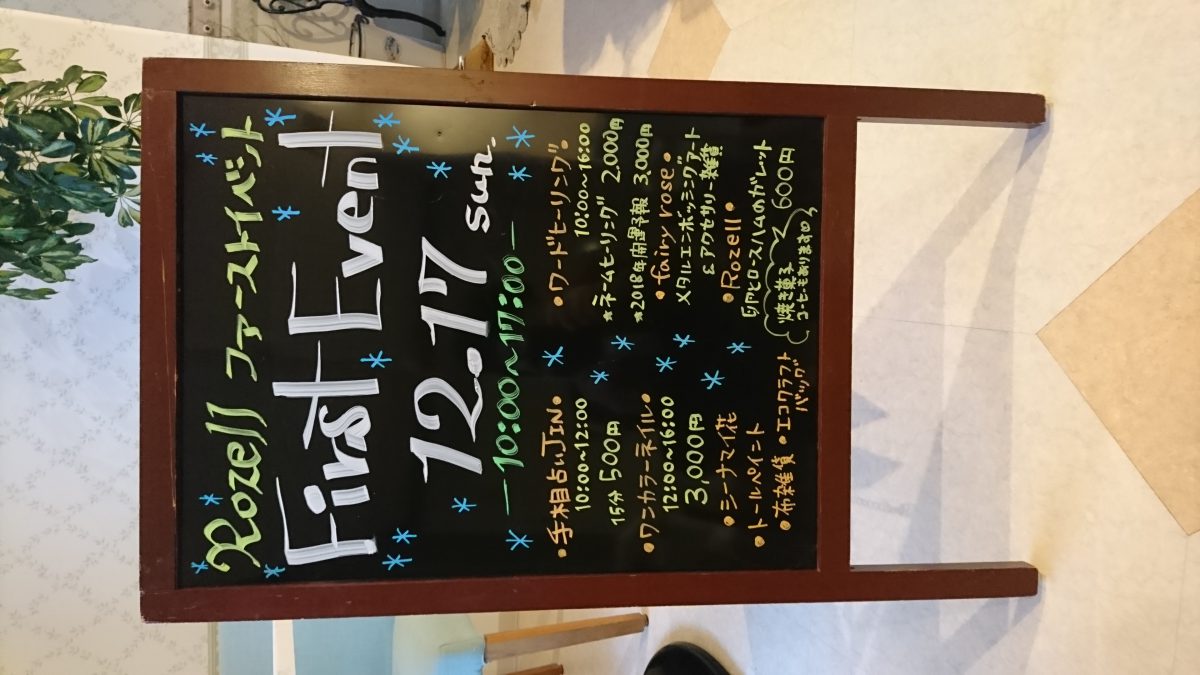 Rozell ファーストイベント
First Event
12.17 sun.
— 10:00〜17:00 —
• 手相占いJIN •
10:00〜12:00
15分 500円
• ワンカラーネイル •
12:00〜16:00
3,000円
• シーナマイ花
• トールペイント
• 布雑貨 • エコクラフト
バッグ
• ワードヒーリング •
10:00〜16:00
★ネームヒーリング 2,000円
★2018年開運予報 3,000円
• fairy rose •
メタルエンボッシングアート
& アクセサリー雑貨
• Rozell •
卵とロースハムのガレット
600円
焼き菓子
コーヒーもあります